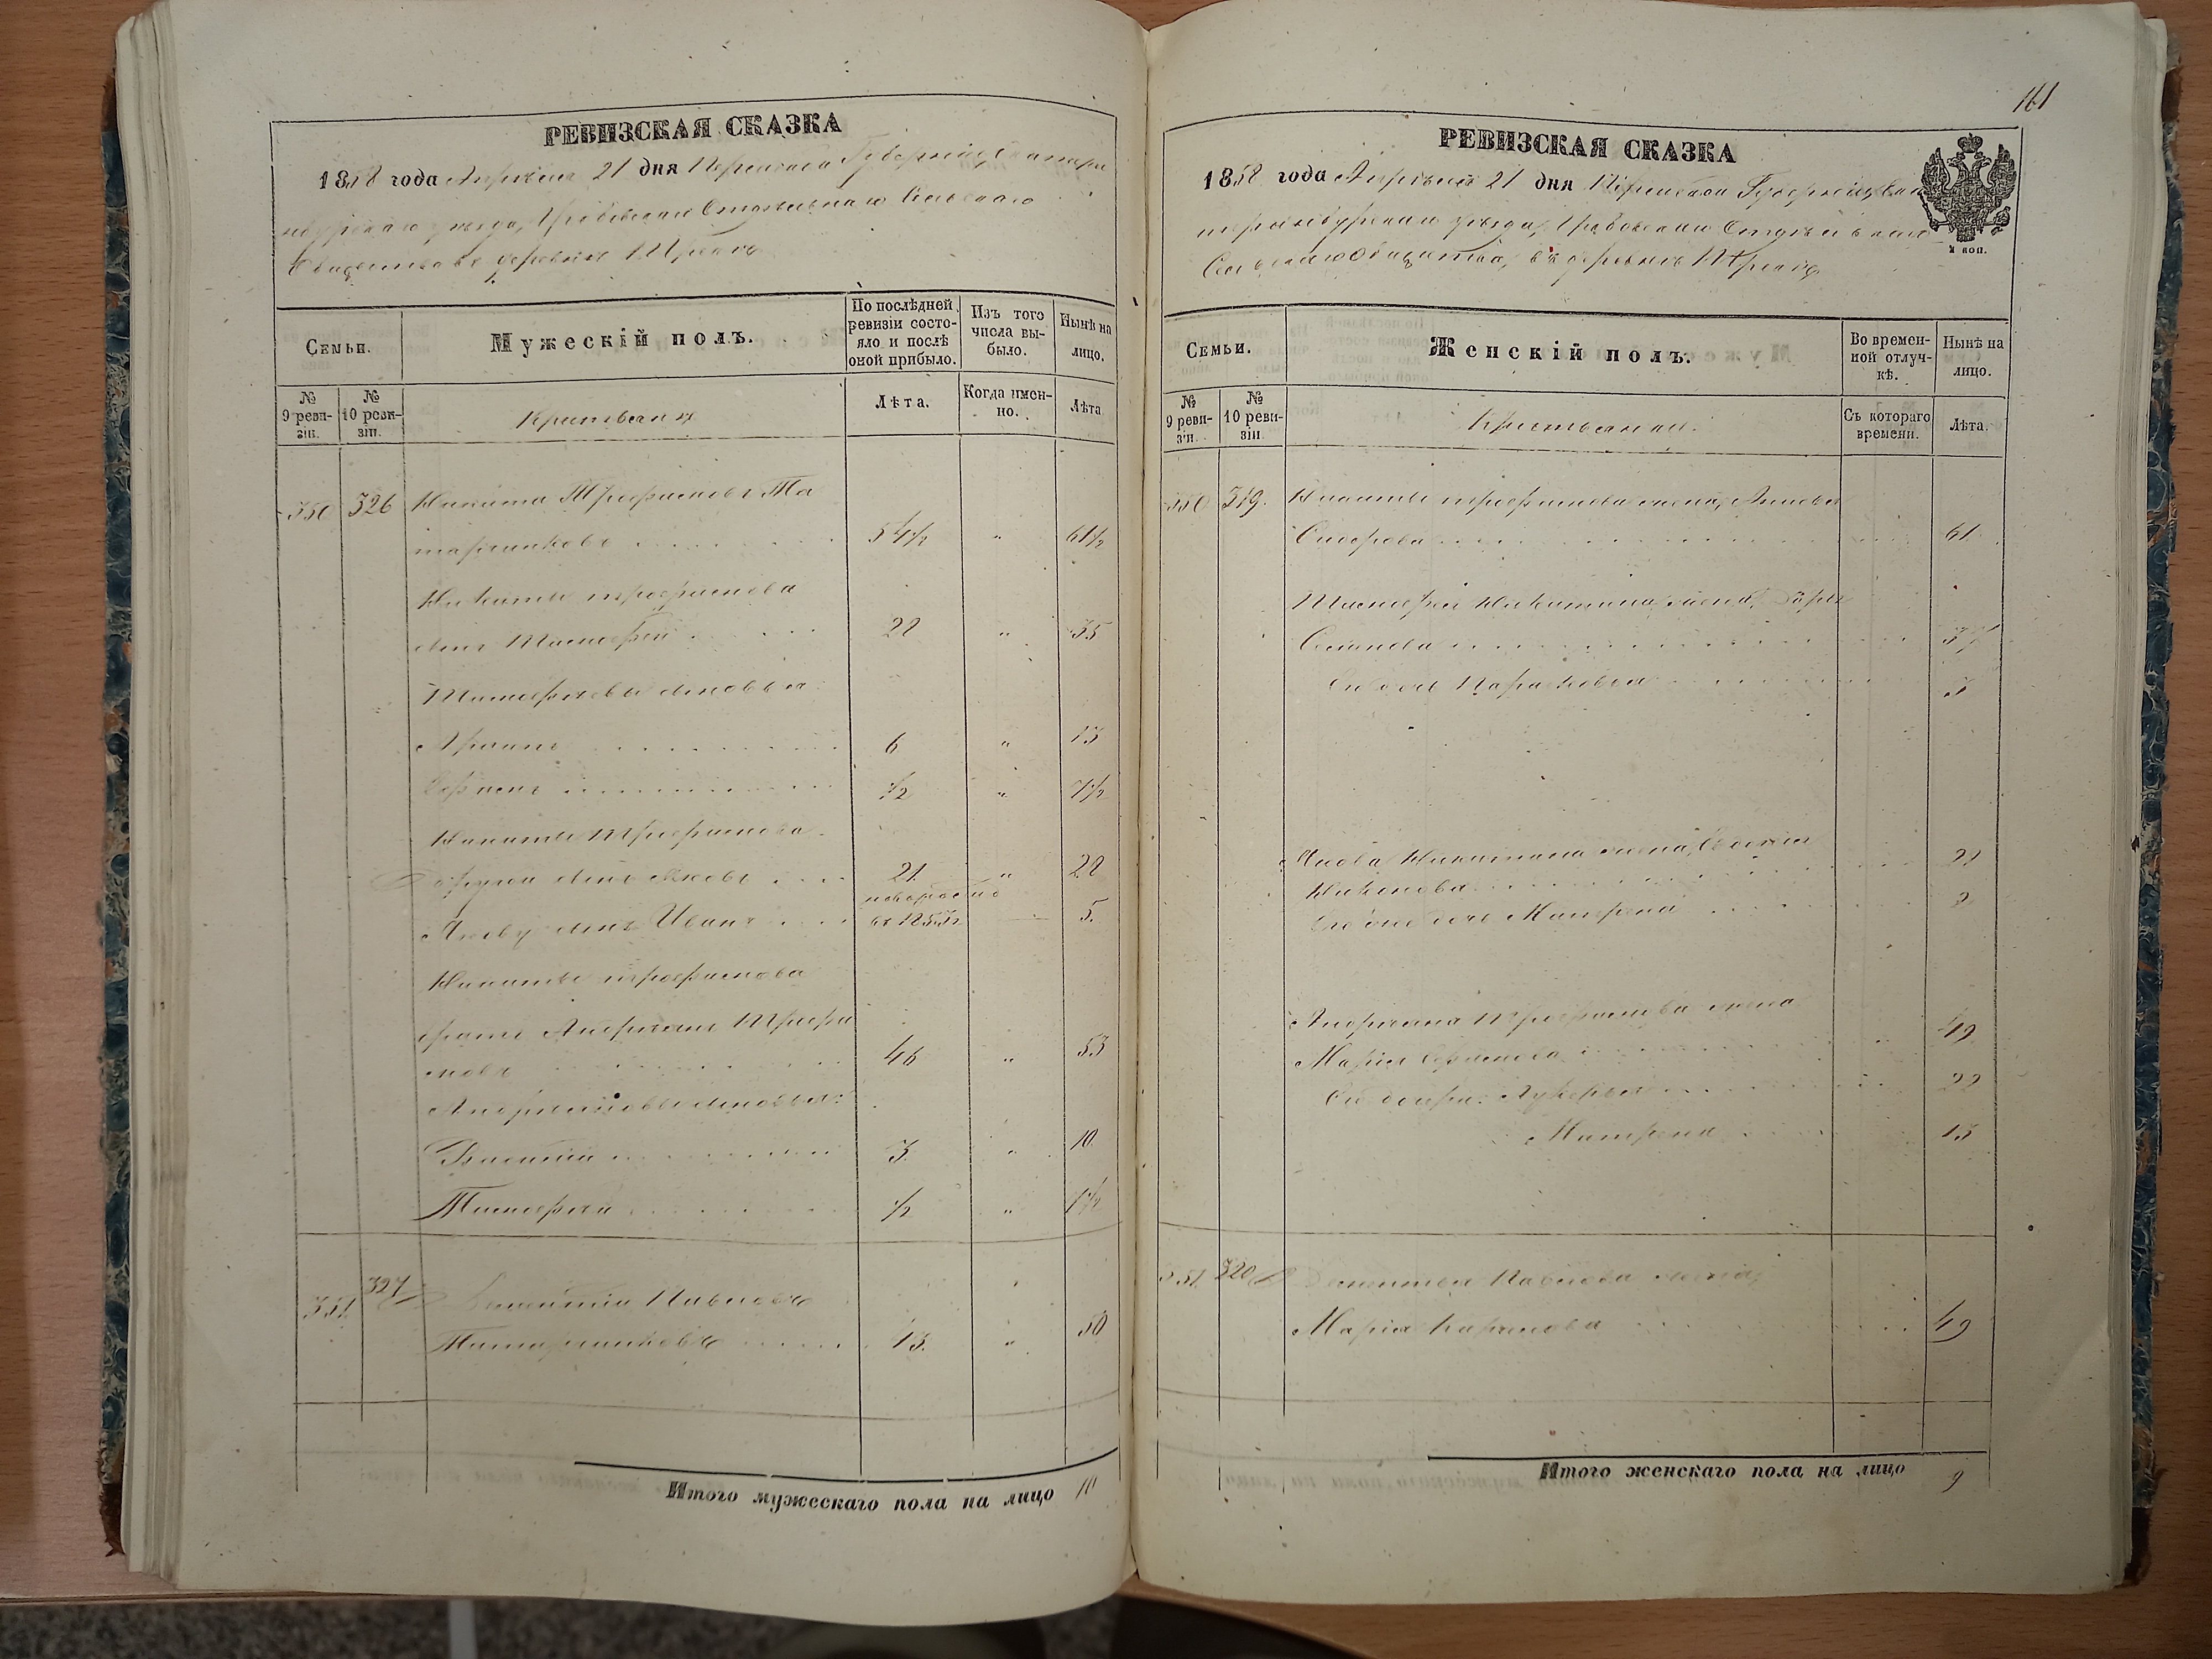 РЕВИЗСКАЯ СКАЗКА
1858 года Апрѣля 21 дня Пермской Губерніи, Екатери
нбургскаго уѣзда, Сельскаго
Общества въ деревнѣ
Семьи.
Мужескій полъ.
По послѣдней ревизіи состо-
яло и послѣ оной прибыло.
Изъ того числа вы-
было.
Нынѣ на лицо.
№ 9 реви-
зіи.
№ 10 реви-
зіи.
Крестьяне
Лѣта.
Когда имен-
но.
Лѣта.
350 326 Никита Трофимовъ Та
тарниковъ 54½ " 61½
Никиты Трофимова
сынъ Тимофей 28 " 35
Тимофеевы сыновья
6 " 13
Ефимъ ½ " 7½
Никиты Трофимова
другой сынъ Яковъ 21 " 28
новорожд
Якову сынъ Иванъ въ 1853 г. 5.
Никиты Трофимова
братъ Андреянъ Трофи
мовъ 46 " 53
Андреяновы сыновья:
Василій 3 " 10
Тимофей ½ " 7½
351 327 Павловъ
Татарниковъ 43. " 50
Итого мужескаго пола на лицо 10
161
РЕВИЗСКАЯ СКАЗКА
1858 года Апрѣля 21 дня Пермской Губерніи, Ека
теринбургскаго уѣзда,
Сельскаго Общества, въ деревнѣ
4 коп.
Семьи.
Женскій полъ.
Во времен-
ной отлуч-
кѣ.
Нынѣ на лицо.
№ 9 реви-
зіи.
№ 10 реви-
зіи.
Крестьянки.
Съ котораго времени.
Лѣта.
350 319. Никиты Трофимова жена,
Сидорова 61
Тимофея Никитина жена, Дарья
Осипова 37
Ея дочь Парасковья 5
Якова Никитина жена, Евдокія 28
Никонова
Ея же дочь Матрена 2
Андреяна Трофимова жена
Марія Ефимова 49
Ея дочери: Лукерья 22
Матрена 13
351. 320 Павлова жена,
Марія 49
Итого женскаго пола на лицо 9